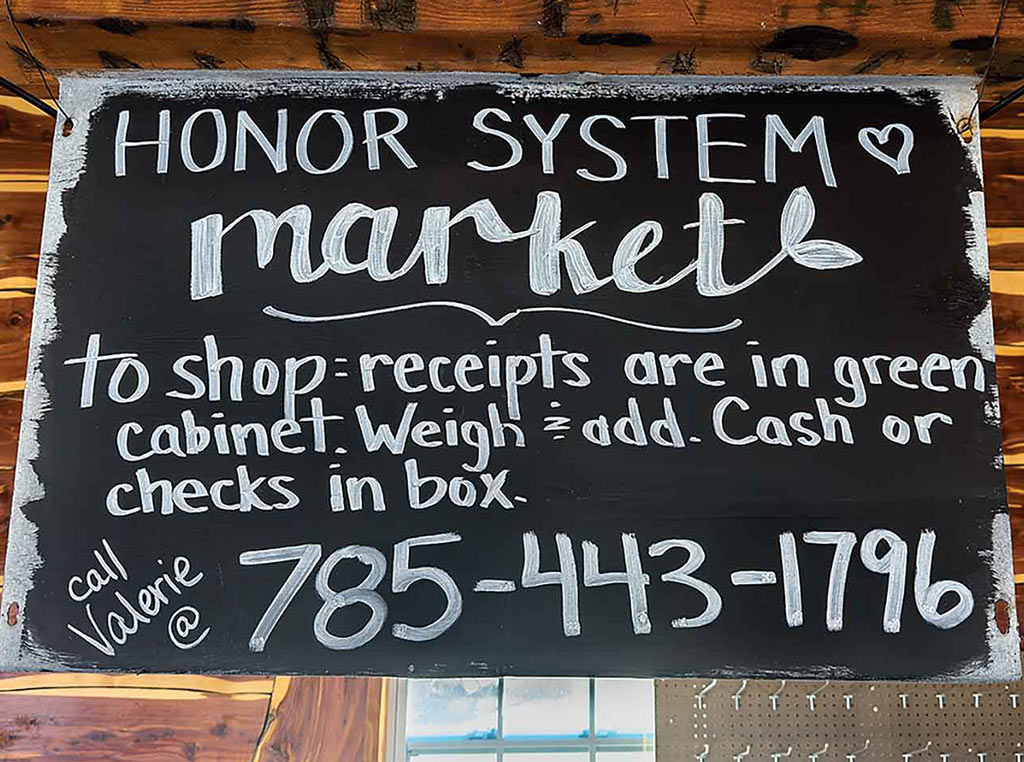 HONOR SYSTEM ♡
market
to shop: receipts are in green
cabinet. Weigh & add. Cash or
checks in box.
call
Valerie
@ 785-443-1796